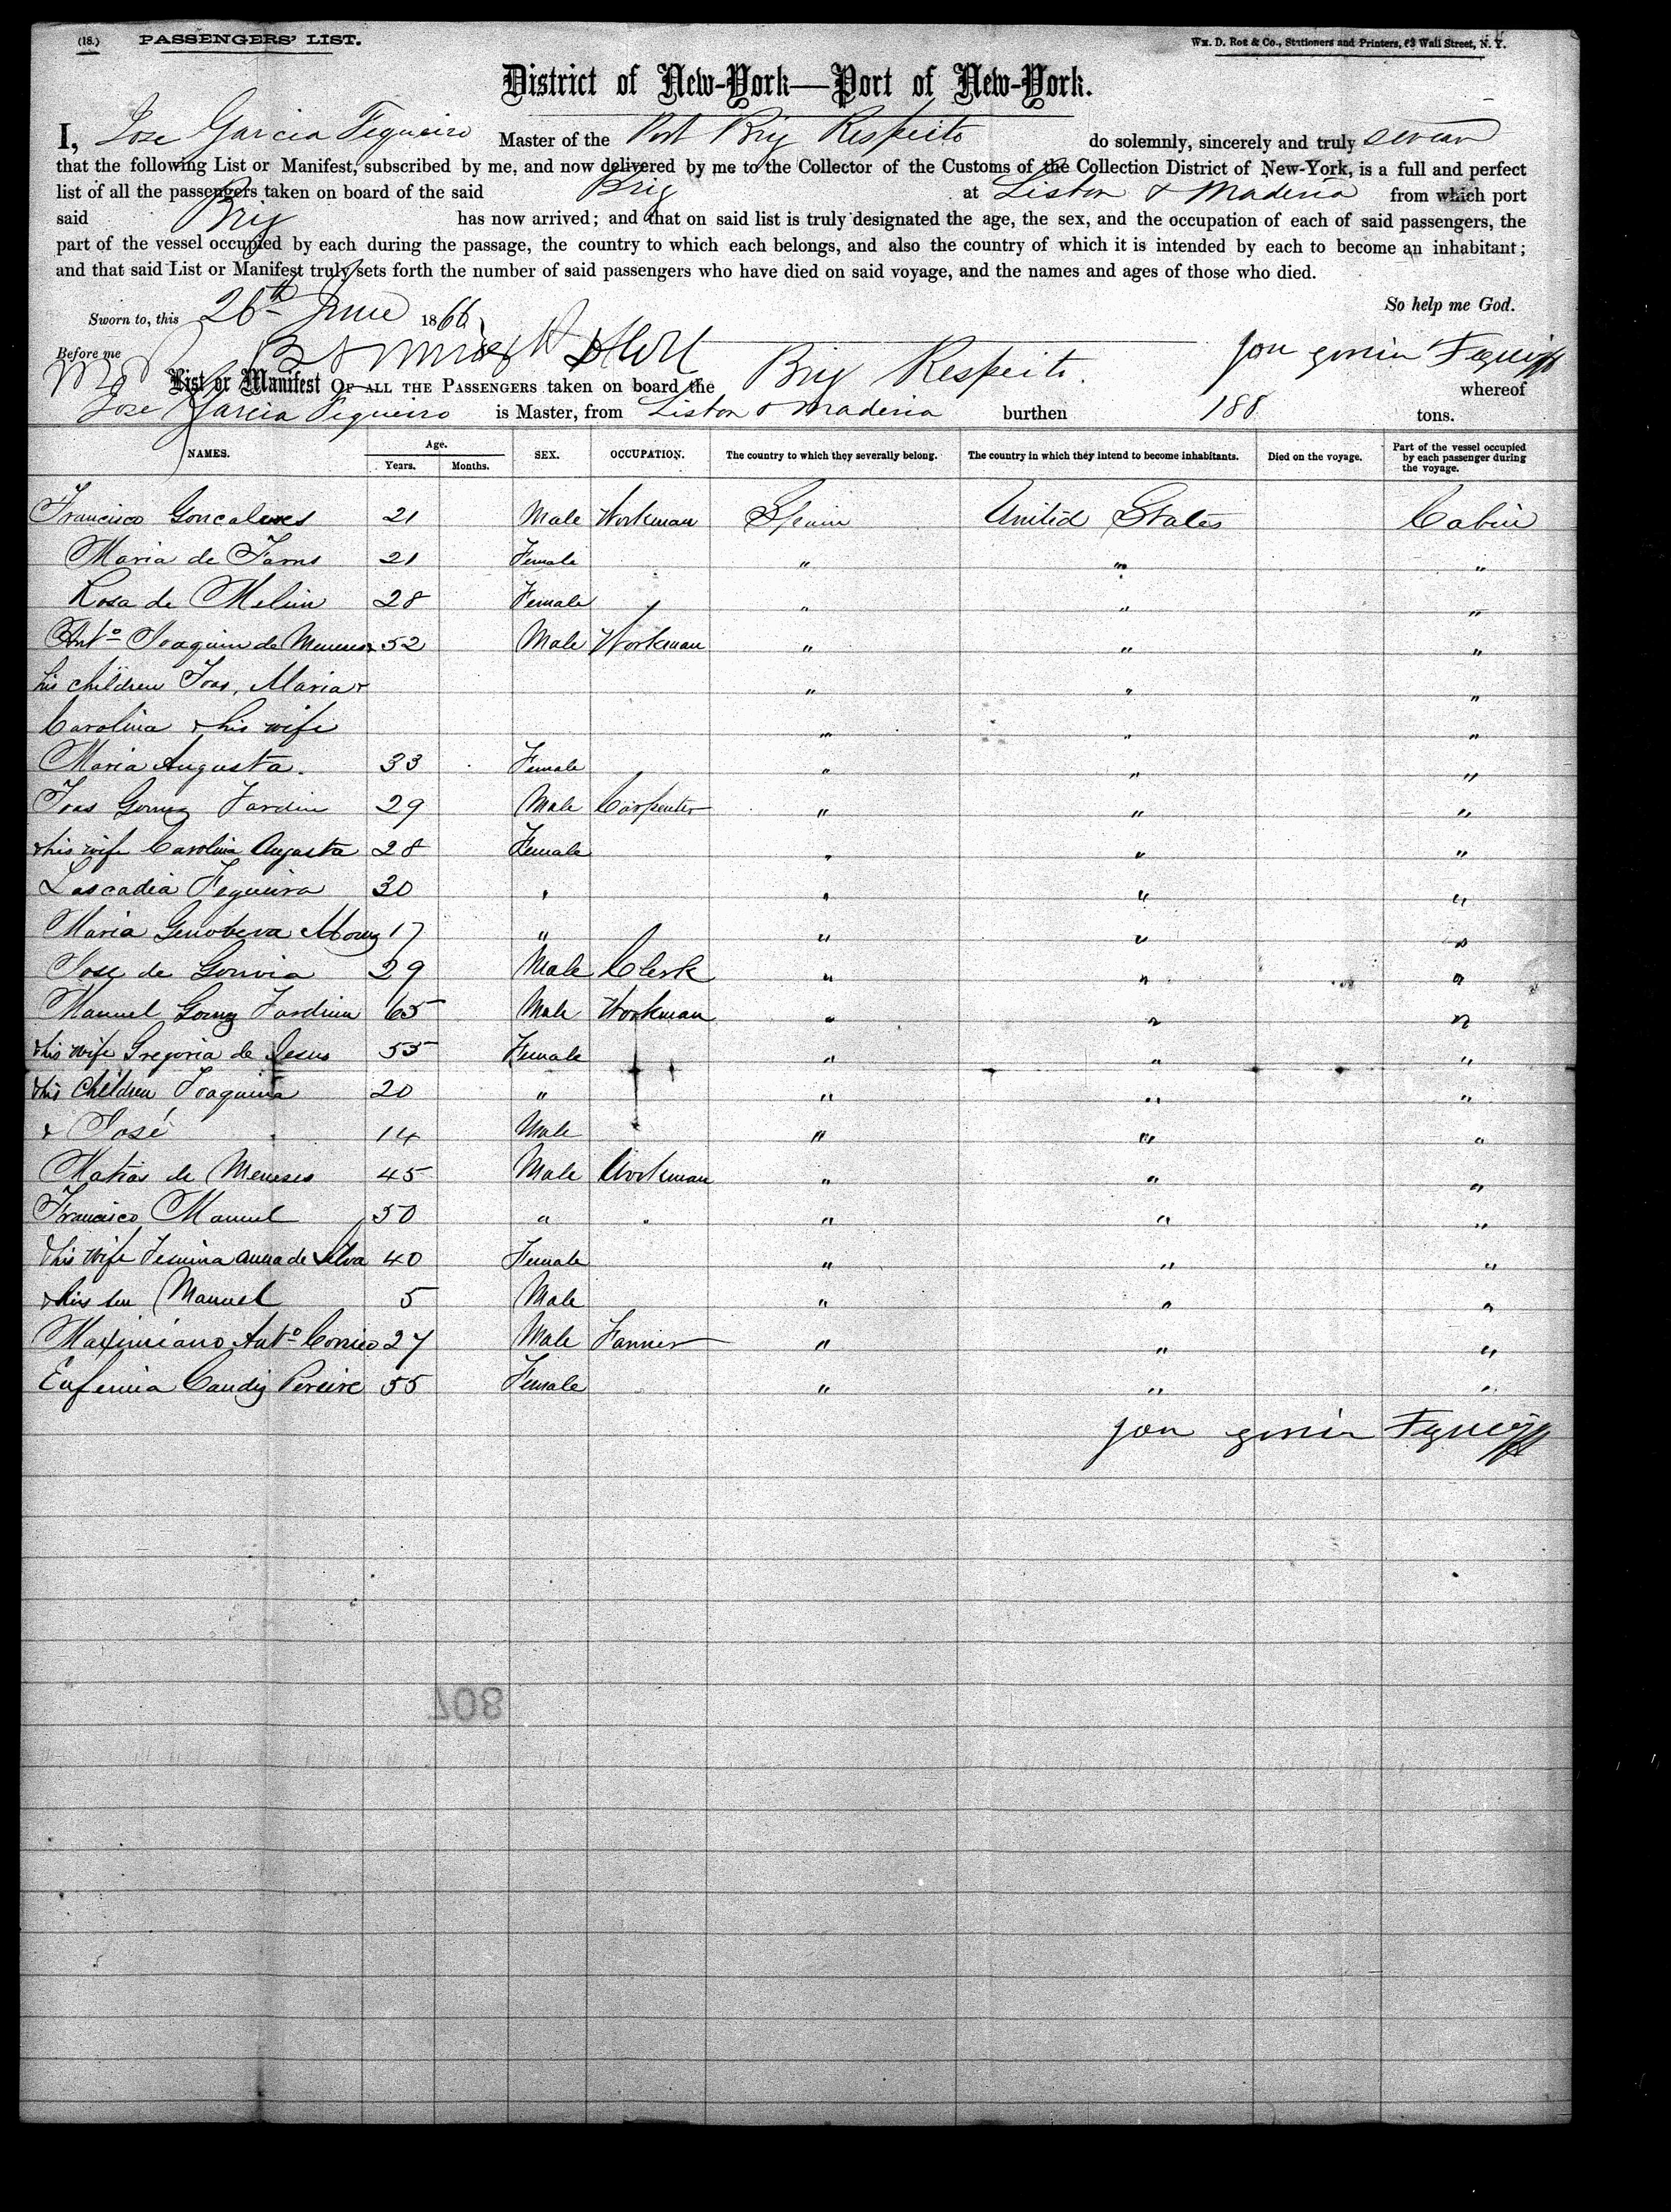 (18.) PASSENGERS' LIST. Wm. D. Roe & Co., Stationers and Printers, 63 Wall Street, N. Y.
District of New-York—Port of New-York.
I, Jose Garcia Fequeiro Master of the Port Brig Respeito do solemnly, sincerely and truly swear
that the following List or Manifest, subscribed by me, and now delivered by me to the Collector of the Customs of the Collection District of New-York, is a full and perfect
list of all the passengers taken on board of the said Brig at Lisbon & Maderia from which port
said Brig has now arrived; and that on said list is truly designated the age, the sex, and the occupation of each of said passengers, the
part of the vessel occupied by each during the passage, the country to which each belongs, and also the country of which it is intended by each to become an inhabitant;
and that said List or Manifest truly sets forth the number of said passengers who have died on said voyage, and the names and ages of those who died.
So help me God.
Sworn to, this 26th June 1866
Before me
List or Manifest OF ALL THE PASSENGERS taken on board the Brig Respeito. whereof
Jose Garcia Fequeiro is Master, from Lisbon & Maderia burthen 188 tons.
NAMES. Age. Years. Months. SEX. OCCUPATION. The country to which they severally belong. The country in which they intend to become inhabitants. Died on the voyage. Part of the vessel occupied by each passenger during the voyage.
Francisco Goncalves 21 Male Workman Spain United States Cabin
Maria de 21 Female " " "
Rosa de 28 Female " " "
Anto Joaquin de Meneses 52 Male Workman " " "
his children Joas, Maria & " " "
Carolina & his wife " " "
Maria Augusta. 33 Female " " "
Joas Gomez Jardin 29 Male Carpenter " " "
& his wife Carolina Augusta 28 Female " " "
Lascadia Fequeira 30 " " " "
Maria Genoveva 17 " " " "
Jose de Gouvia 29 Male Clerk " " "
Manuel Gomez Jardim 65 Male Workman " " "
& his wife Gregoria de Jesus 55 Female " " "
& his Children Joaquina 20 " " " "
& José 14 Male " " "
Matias de Meneses 45 Male Workman " " "
Francisco Manuel 50 " " " " "
& his wife anna de Silva 40 Female " " "
& his son Manuel 5 Male " " "
Maximiano Anto 27 Male Farmer " " "
Eufemia Pereire 55 Female " " "
807